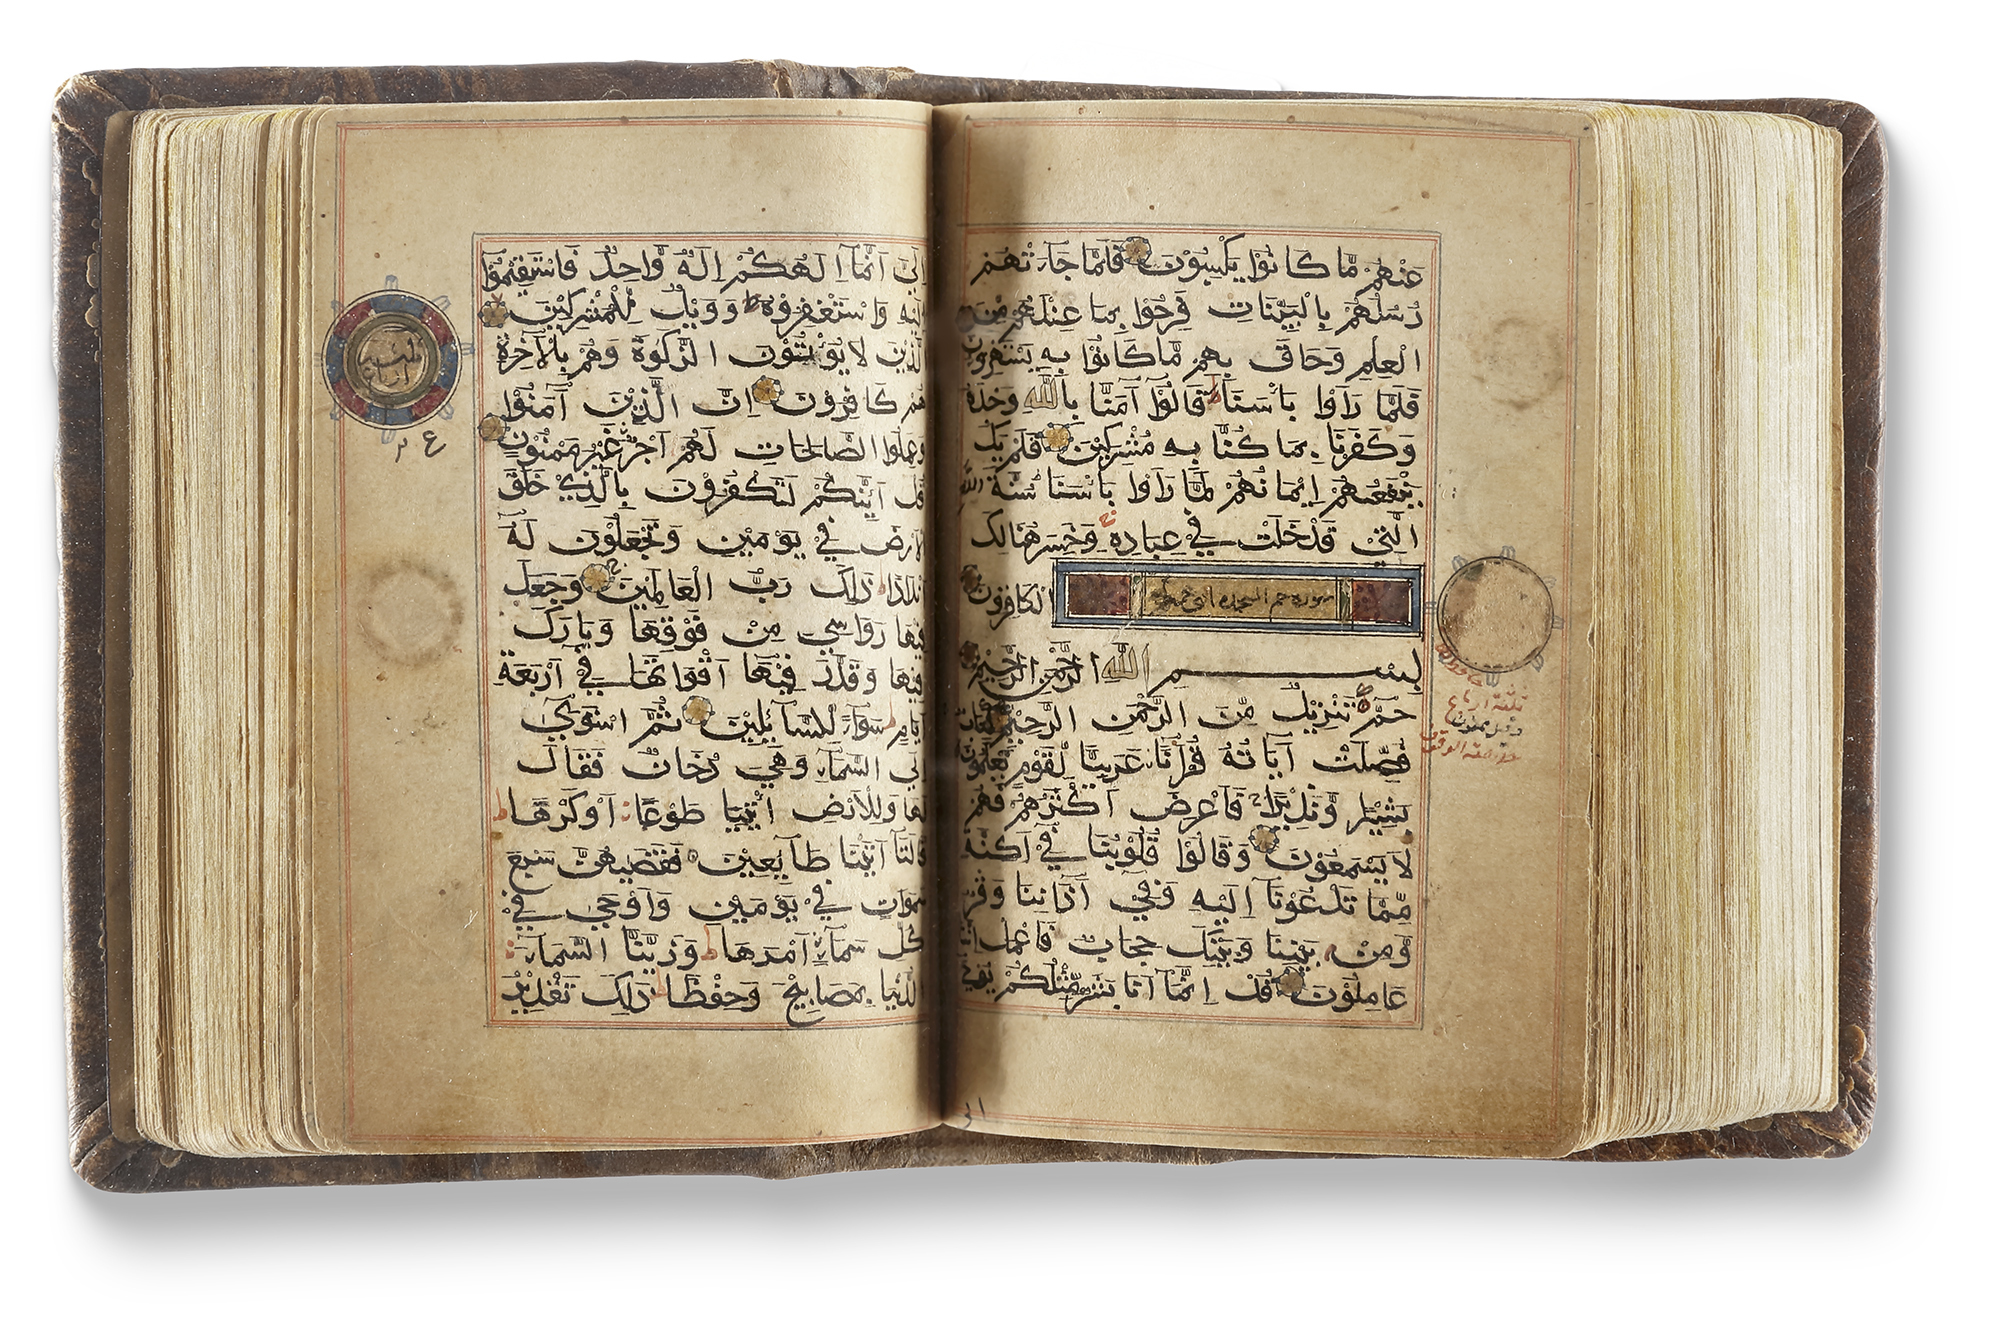 عَنْهُمْ مَّا كَانُوا يَكْسِبُونَ فَلَمَّا جَاءَتْهُمْ
رُسُلُهُمْ بِالْبَيِّنَاتِ فَرِحُوا بِمَا عِنْدَهُمْ مِنَ
الْعِلْمِ وَحَاقَ بِهِمْ مَّا كَانُوا بِهِ يَسْتَهْزِؤُنَ
فَلَمَّا رَاَوْا بَاْسَنَا قَالُوا آمَنَّا بِاللَّهِ وَحْدَهُ
وَكَفَرْنَا بِمَا كُنَّا بِهِ مُشْرِكِيْنَ فَلَمْ يَكُ
يَنْفَعُهُمْ اِيْمَانُهُمْ لَمَّا رَاَوْا بَاْسَنَا سُنَّةَ اللَّهِ
الَّتِيْ قَدْ خَلَتْ فِيْ عِبَادِهِ وَخَسِرَ هُنَالِكَ
الْكَافِرُونَ
سورة حم السجدة
بِسْمِ اللَّهِ الرَّحْمٰنِ الرَّحِيْمِ
حٰمٓ تَنْزِيْلٌ مِّنَ الرَّحْمٰنِ الرَّحِيْمِ كِتَابٌ
فُصِّلَتْ آيَاتُهُ قُرْآنًا عَرَبِيًّا لِّقَوْمٍ يَعْلَمُوْنَ
بَشِيْرًا وَّنَذِيْرًا فَاَعْرَضَ اَكْثَرُهُمْ فَهُمْ
لَا يَسْمَعُوْنَ وَقَالُوْا قُلُوْبُنَا فِيْ اَكِنَّةٍ
مِّمَّا تَدْعُوْنَا اِلَيْهِ وَفِيْ آذَانِنَا وَقْرٌ
وَّمِنْ بَيْنِنَا وَبَيْنِكَ حِجَابٌ فَاعْمَلْ اِنَّنَا
عَامِلُوْنَ قُلْ اِنَّمَا اَنَا بَشَرٌ مِّثْلُكُمْ يُوْحٰى
ثلثة ارباع
اِلَيَّ اَنَّمَا اِلٰهُكُمْ اِلٰهٌ وَّاحِدٌ فَاسْتَقِيْمُوْا
اِلَيْهِ وَاسْتَغْفِرُوْهُ وَوَيْلٌ لِّلْمُشْرِكِيْنَ
الَّذِيْنَ لَا يُؤْتُوْنَ الزَّكٰوةَ وَهُمْ بِالْآخِرَةِ
هُمْ كَافِرُوْنَ اِنَّ الَّذِيْنَ آمَنُوْا
وَعَمِلُوا الصَّالِحَاتِ لَهُمْ اَجْرٌ غَيْرُ مَمْنُوْنٍ
قُلْ اَئِنَّكُمْ لَتَكْفُرُوْنَ بِالَّذِيْ خَلَقَ
الْاَرْضَ فِيْ يَوْمَيْنِ وَتَجْعَلُوْنَ لَهُ
اَنْدَادًا ذٰلِكَ رَبُّ الْعَالَمِيْنَ وَجَعَلَ
فِيْهَا رَوَاسِيَ مِنْ فَوْقِهَا وَبَارَكَ
فِيْهَا وَقَدَّرَ فِيْهَا اَقْوَاتَهَا فِيْ اَرْبَعَةِ
اَيَّامٍ سَوَاءً لِّلسَّآئِلِيْنَ ثُمَّ اسْتَوٰى
اِلَى السَّمَآءِ وَهِيَ دُخَانٌ فَقَالَ
لَهَا وَلِلْاَرْضِ ائْتِيَا طَوْعًا اَوْ كَرْهًا
قَالَتَا اَتَيْنَا طَآئِعِيْنَ فَقَضٰيهُنَّ سَبْعَ
سَمٰوَاتٍ فِيْ يَوْمَيْنِ وَاَوْحٰى فِيْ
كُلِّ سَمَآءٍ اَمْرَهَا وَزَيَّنَّا السَّمَآءَ
الدُّنْيَا بِمَصَابِيْحَ وَحِفْظًا ذٰلِكَ تَقْدِيْرُ